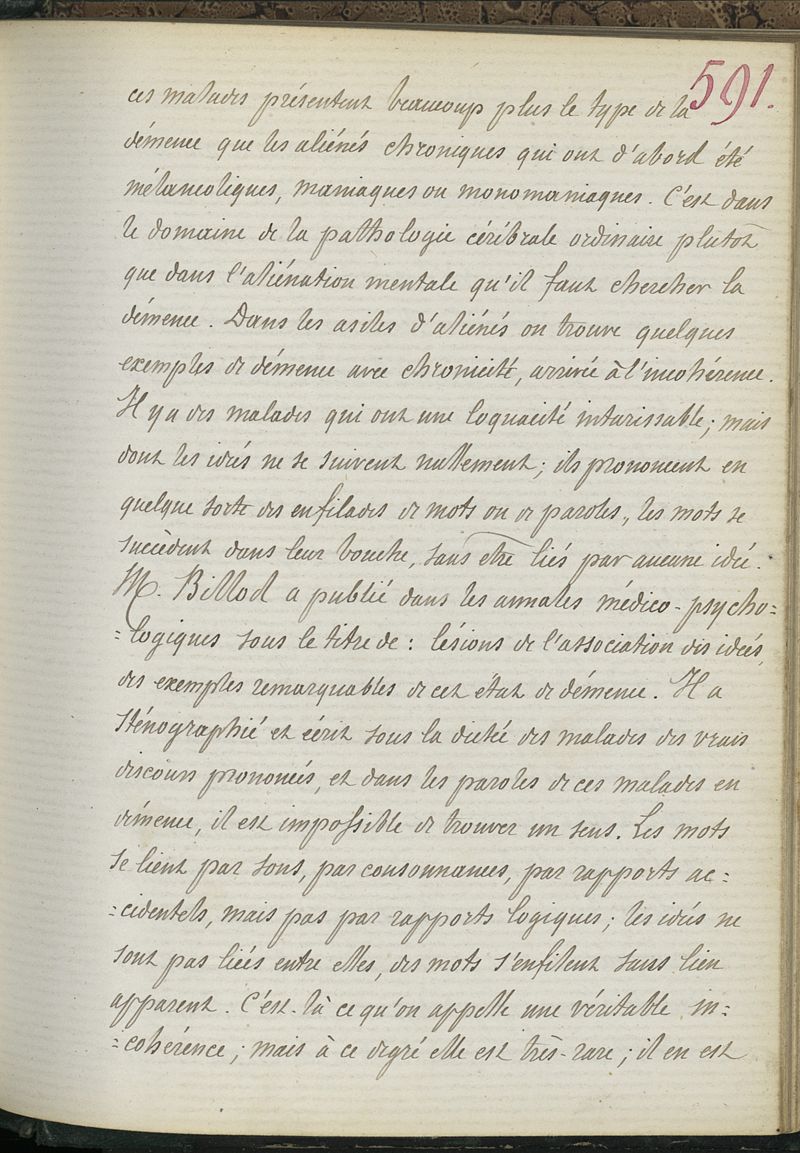 591.
ces malades présentent beaucoup plus le type de la
démence que les aliénés chroniques qui ont d'abord été
mélancoliques, maniaques ou monomaniaques. C'est dans
le domaine de la pathologie cérébrale ordinaire plutôt
que dans l'aliénation mentale qu'il faut chercher la
démence. Dans les asiles d'aliénés on trouve quelques
exemples de démence avec chronicité, arrivée à l'incohérence.
Il y a des malades qui ont une loquacité intarissable; mais
dont les idées ne se suivent nullement; ils prononcent en
quelque sorte des enfilades de mots ou de paroles, les mots se
succèdent dans leur bouche, sans etre liés par aucune idée.
M. Billod a publié dans les annales médico-psycho=
=logiques sous le titre de: lésions de l'association des idées,
des exemples remarquables de cet état de démence. Il a
sténographié et écrit sous la dictée des malades des vrais
discours prononcés, et dans les paroles de ces malades en
démence, il est impossible de trouver un sens. Les mots
se lient par sons, par consonnances, par rapports ac=
=cidentels, mais pas par rapports logiques; les idées ne
sont pas liées entre elles, des mots s'enfilent sans lien
apparent. C'est-là ce qu'on appelle une véritable in=
=cohérence; mais à ce degré elle est très-rare; il en est